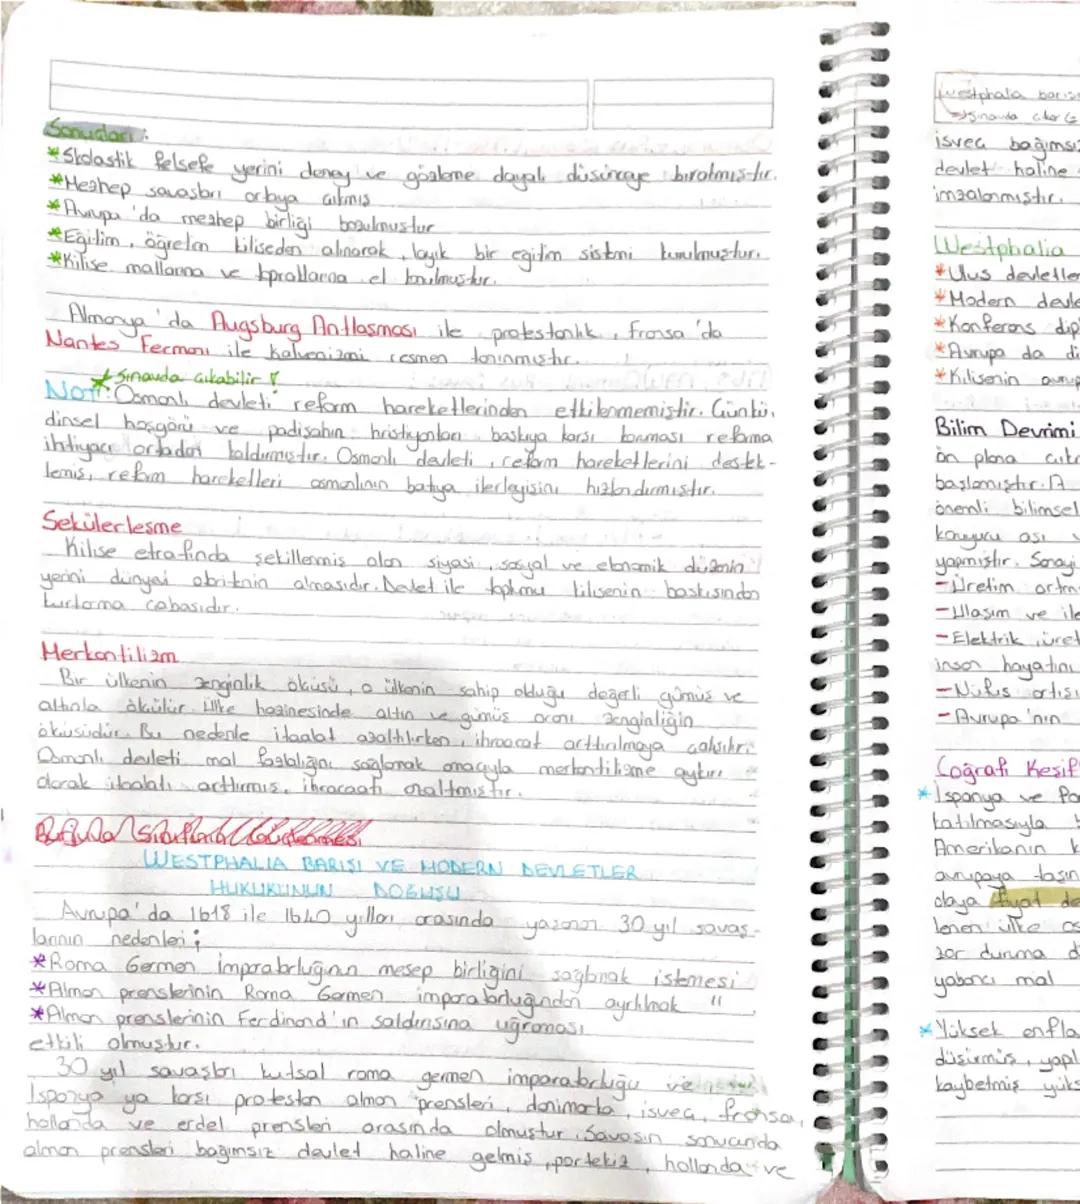 Sonuçları:
*Skolastik felsefe yerini deney ve gözleme dayalı düşünceye bırakmıştır.
*Mezhep savaşları ortaya çıkmış
*Avrupa'da mezhep birliği bozulmuştur
*Eğitim, öğretim kiliseden alınarak, layık bir eğitim sistemi kurulmuştur.
*Kilise mallarına ve topraklarına el konulmuştur.
Almanya'da Augsburg Antlaşması ile protestanlık, Fransa'da
Nantes Fermanı ile Kalvenizmi resmen tanınmıştır.
*Sınavda çıkabilir!
NOT: Osmanlı devleti reform hareketlerinden etkilenmemiştir. Çünkü,
dinsel hoşgörü ve padişahın hristiyanları baskıya karşı koruması reforma
ihtiyacı ortadan kaldırmıştır. Osmanlı devleti, reform hareketlerini destek-
lemiş, reform hareketleri osmanlının batıya ilerleyişini hızlandırmıştır.
Sekülerleşme
Kilise etrafında şekillenmiş olan siyasi, sosyal ve ekonomik düzenin
yerini dünyevi otoritenin almasıdır. Devlet ile toplumu kilisenin baskısından
kurtarma çabasıdır.
Merkantilizm
Bir ülkenin zenginlik ölçüsü, o ülkenin sahip olduğu değerli gümüş ve
altınla ölçülür. Ülke hazinesinde altın ve gümüş oranı zenginliğin
ölçüsüdür. Bu nedenle ithalat azaltılırken, ihracat arttırılmaya çalışılır.
Osmanlı devleti mal fazlalığını sağlamak amacıyla merkantilizme aykırı
olarak ithalatı arttırmış, ihracatı azaltmıştır.
WESTPHALIA BARIŞI VE MODERN DEVLETLER
HUKUKUNUN DOĞUŞU
Avrupa'da 1618 ile 1640 yılları arasında yaşanan 30 yıl savaş-
larının nedenleri;
*Roma Germen imparatorluğunun mesep birliğini sağlamak istemesi
*Alman prenslerinin Roma Germen imparatorluğundan ayrılmak "
*Alman prenslerinin Ferdinand'ın saldırısına uğraması
etkili olmuştur.
30 yıl savaşları kutsal roma germen imparatorluğu ve
İspanya ya karşı protestan alman prensleri, danimarka, isveç, fransa,
hollanda ve erdel prensleri arasında olmuştur. Savaşın sonucunda
alman prensleri bağımsız devlet haline gelmiş, portekiz, hollanda ve
Westphalia barışı
Sınavda çıkar
isveç bağımsız
devlet haline
imzalanmıştır.
Westphalia
*Ulus devletler
*Modern devle
*Konferans dip
*Avrupa da di
*Kilisenin avrup
Bilim Devrimi
ön plana çıkı
başlamıştır.
önemli bilimsel
koruyucu aşı
yapmıştır. Sanayi
-Üretim artmı
-Ulaşım ve ile
-Elektrik, üret
insan hayatını
-Nüfus artışı
-Avrupa'nın
Coğrafi Keşif
*İspanya ve Po
katılmasıyla
Amerikanın k
avrupaya taşın
olaya fiyat de
lenen ülke os
zor duruma d
yabancı mal
*Yüksek enfla
düşürmüş, yapıl
kaybetmiş yüks